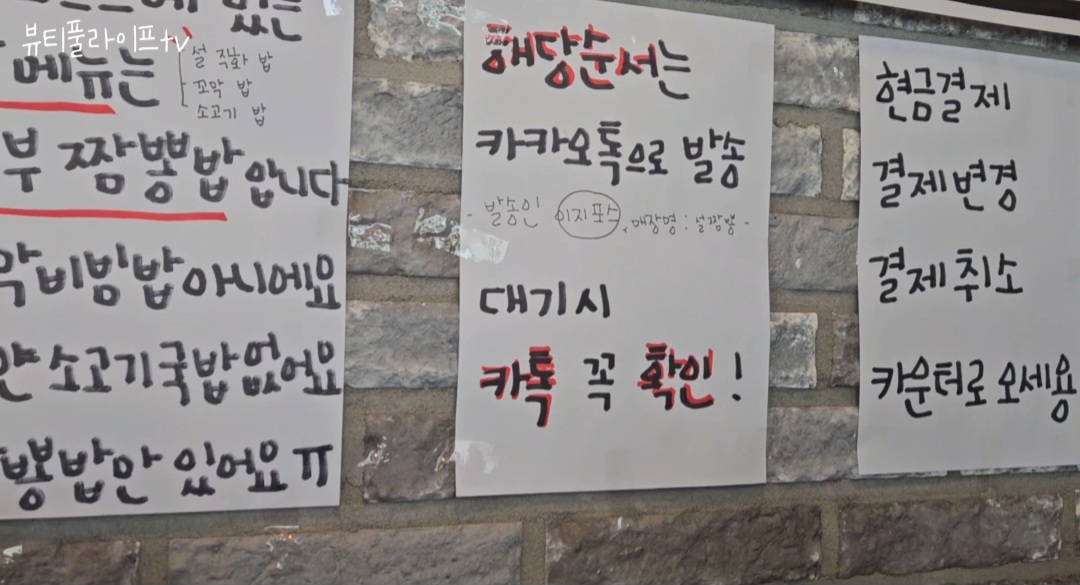 뷰티풀라이프tv
있는
메뉴는
설 작화 밥
꼬막 밥
소고기 밥
부 짬뽕밥입니다
막비빔밥아니에요
얀소고기국밥없어요
뽕밥만 있어요 ㅠ
해당순서는
카카오톡으로 발송
- 발송인 이지포스, 매장명 : 설짬뽕 -
대기시
카톡 꼭 확인!
현금결제
결제변경
결제취소
카운터로 오세용